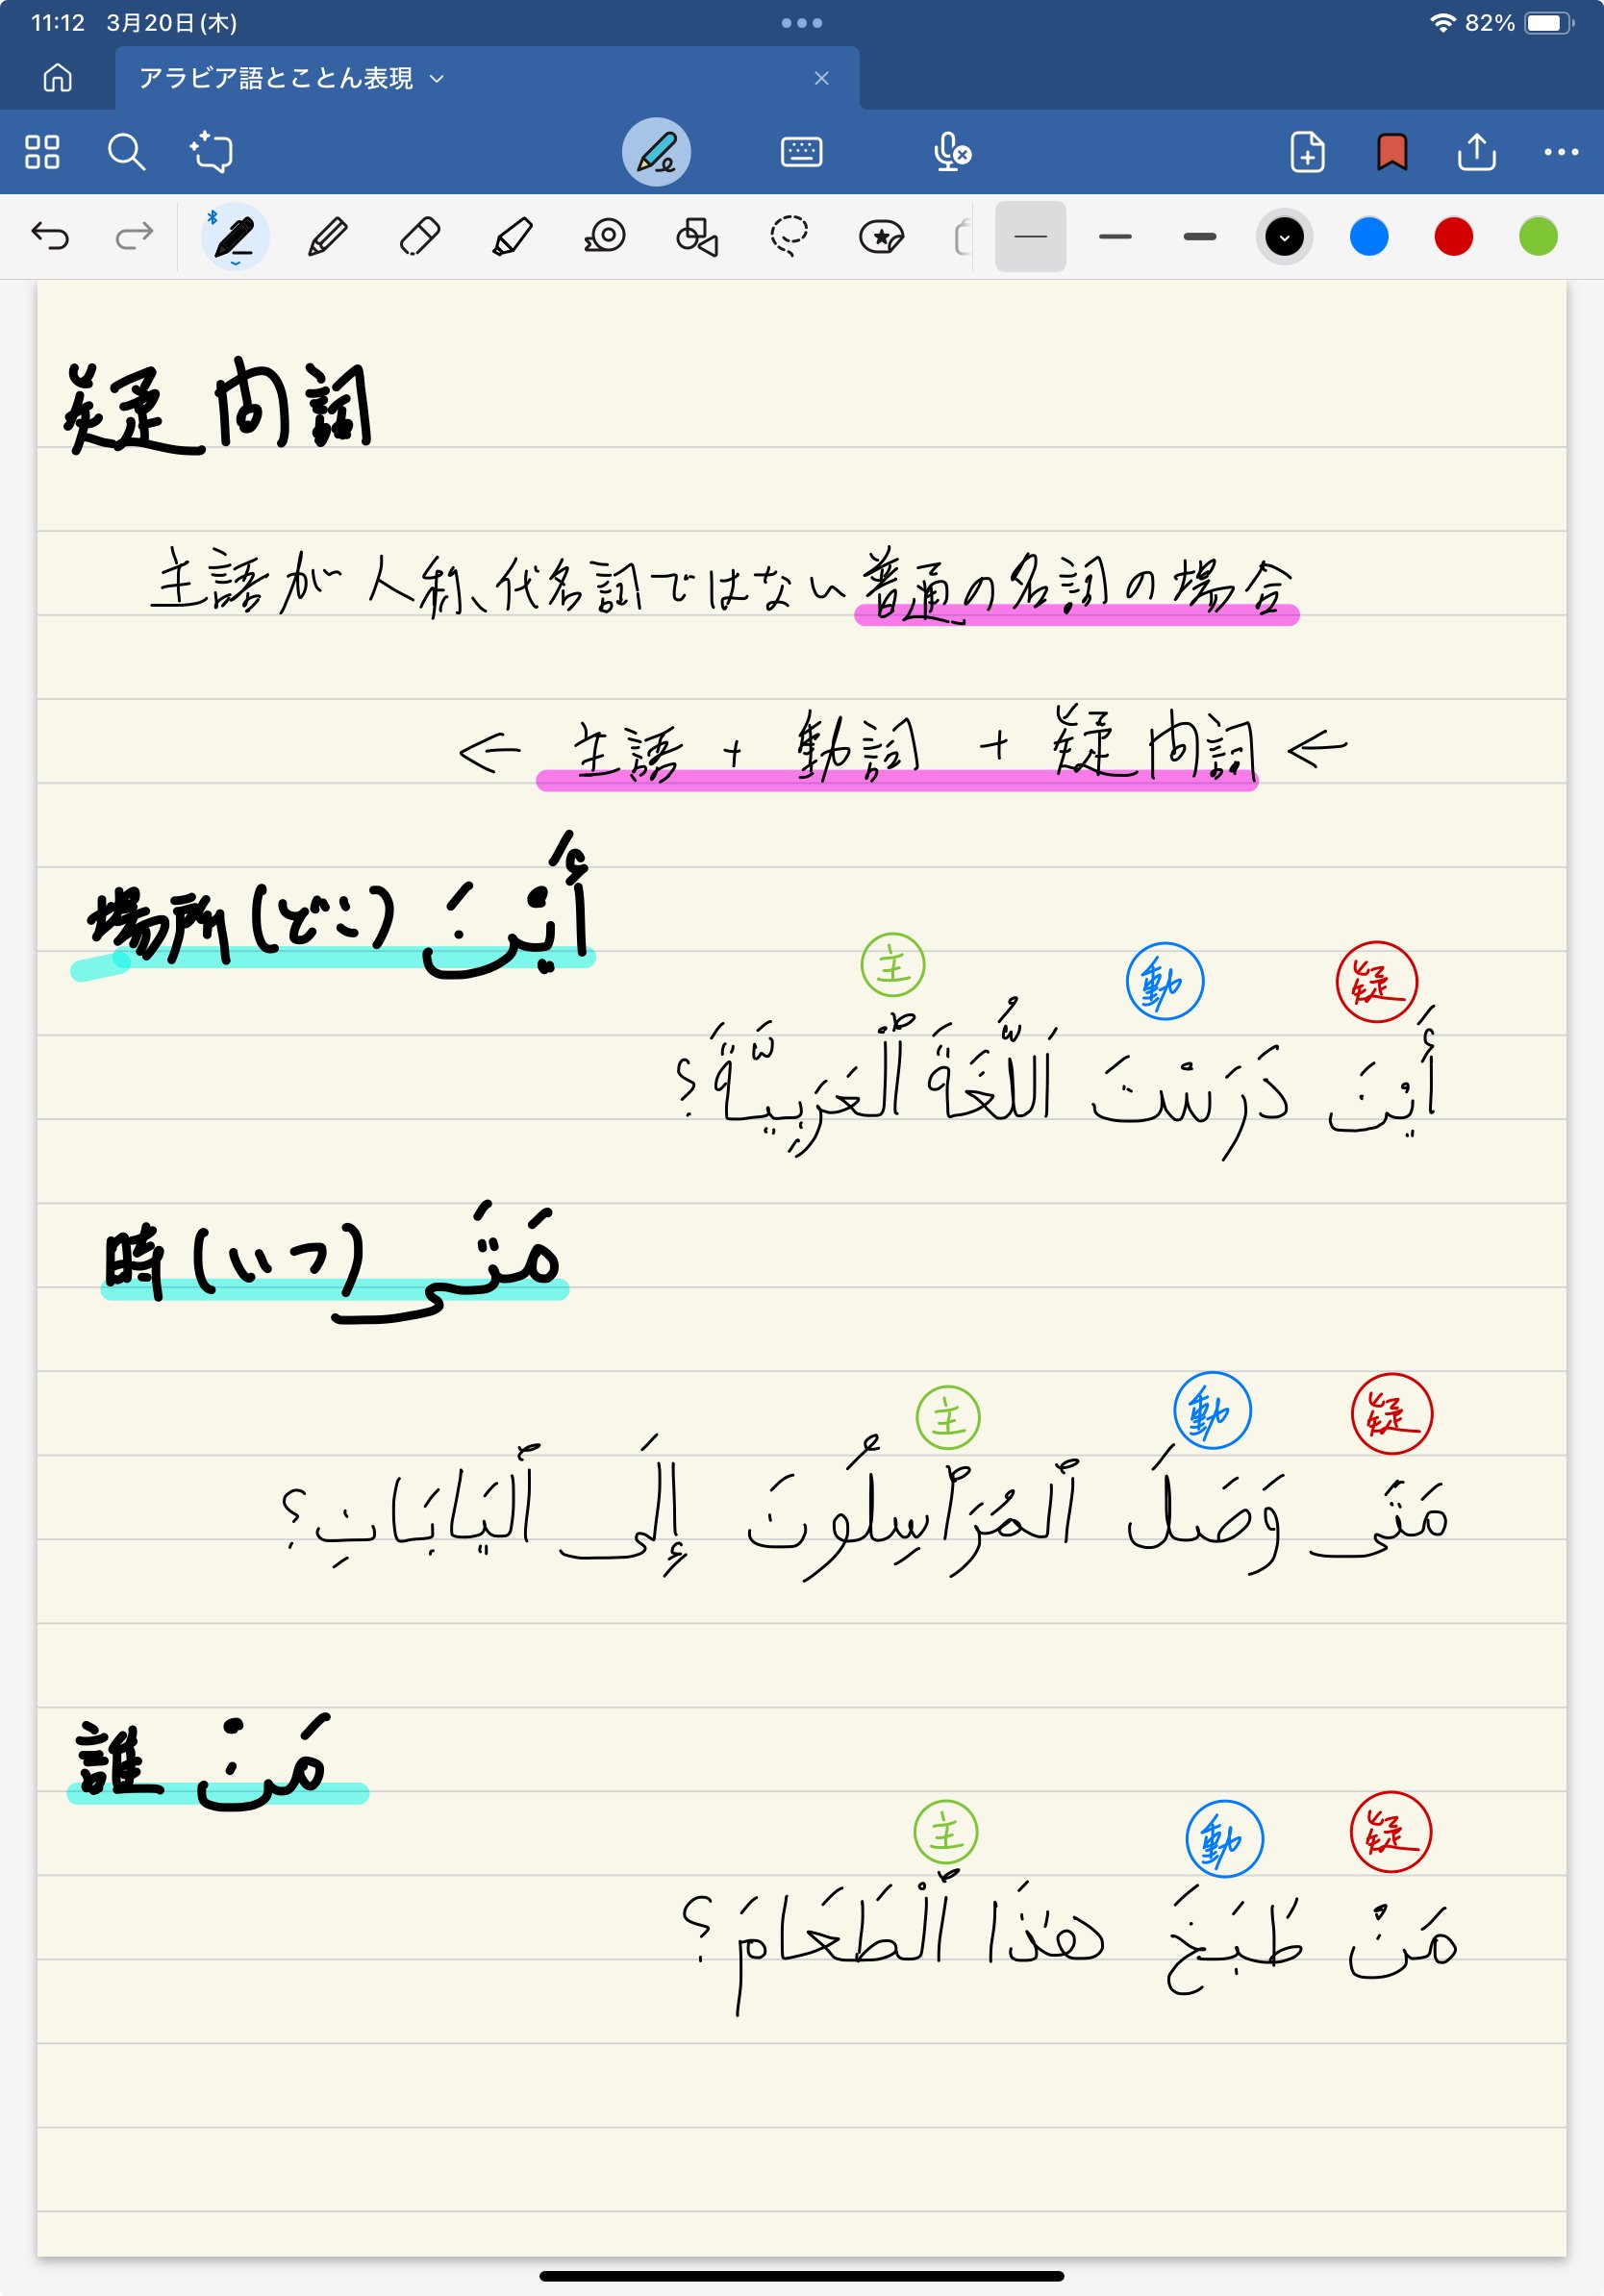 11:12 3月20日(木)
82%
アラビア語とことん表現
疑問詞
主語が人称代名詞ではない普通の名詞の場合
← 主語 + 動詞 + 疑問詞 ←
場所(どこ) أَيْنَ
主 動 疑
أَيْنَ دَرَسْتَ اَللُّغَةَ ٱلْعَرَبِيَّةَ؟
時(いつ) مَتَى
主 動 疑
مَتَى وَصَلَ ٱلمُرَاسِلُونَ إِلَى ٱليَابَانِ؟
誰 مَنْ
主 動 疑
مَنْ طَبَخَ هَذَا ٱلْطَعَامَ؟